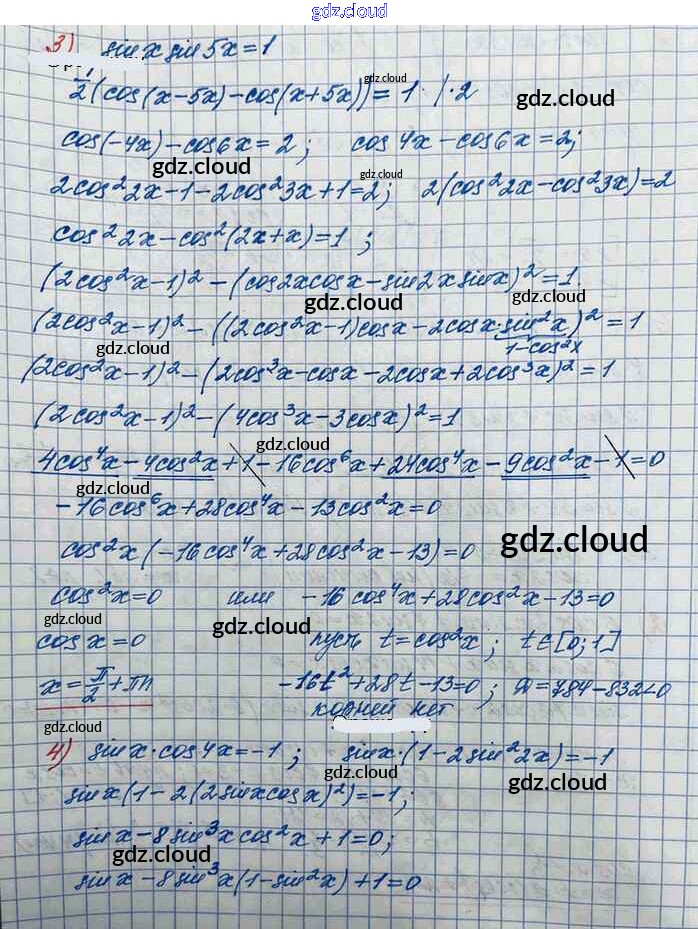 gdz.cloud
3) sin x sin 5x = 1
gdz.cloud
1/2 (cos(x-5x) - cos(x+5x)) = 1 · / · 2
gdz.cloud
cos(-4x) - cos 6x = 2; cos 4x - cos 6x = 2;
gdz.cloud
gdz.cloud
2cos²2x - 1 - 2cos²3x + 1 = 2; 2(cos²2x - cos²3x) = 2
gdz.cloud
cos²2x - cos²(2x+x) = 1;
(2cos²x-1)² - (cos2x cos x - sin2x sin x)² = 1.
gdz.cloud
gdz.cloud
(2cos²x-1)² - ((2cos²x-1)cos x - 2cos x · sin²x)² = 1
1-cos²x
gdz.cloud
(2cos²x-1)² - (2cos³x - cos x - 2cos x + 2cos³x)² = 1
(2cos²x-1)² - (4cos³x - 3cos x)² = 1
gdz.cloud
4cos⁴x - 4cos²x + 1 - 16cos⁶x + 24cos⁴x - 9cos²x - 1 = 0
gdz.cloud
-16cos⁶x + 28cos⁴x - 13cos²x = 0
gdz.cloud
cos²x(-16cos⁴x + 28cos²x - 13) = 0
cos²x = 0 или -16cos⁴x + 28cos²x - 13 = 0
gdz.cloud
gdz.cloud
cos x = 0 пусть t = cos²x; t ∈ [0; 1]
x = π/2 + πn -16t² + 28t - 13 = 0; D = 784 - 832 < 0
корней нет
gdz.cloud
4) sin x · cos 4x = -1; sin x · (1 - 2sin²2x) = -1
gdz.cloud
gdz.cloud
sin x(1 - 2(2sin x cos x)²) = -1;
sin x - 8sin³x cos²x + 1 = 0;
gdz.cloud
sin x - 8sin³x(1 - sin²x) + 1 = 0